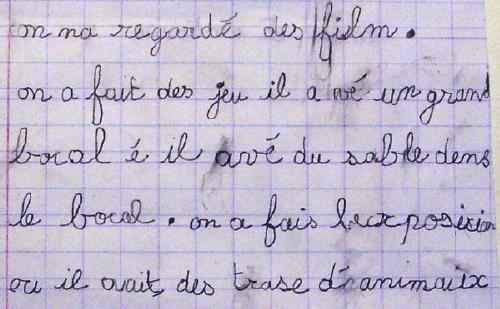 on na regardé des film.
on a fait des jeu il a vé un grand
bocal é il avé du sable dens
le bocal. on a fais lexposision
ou il avait des trase d'animaux